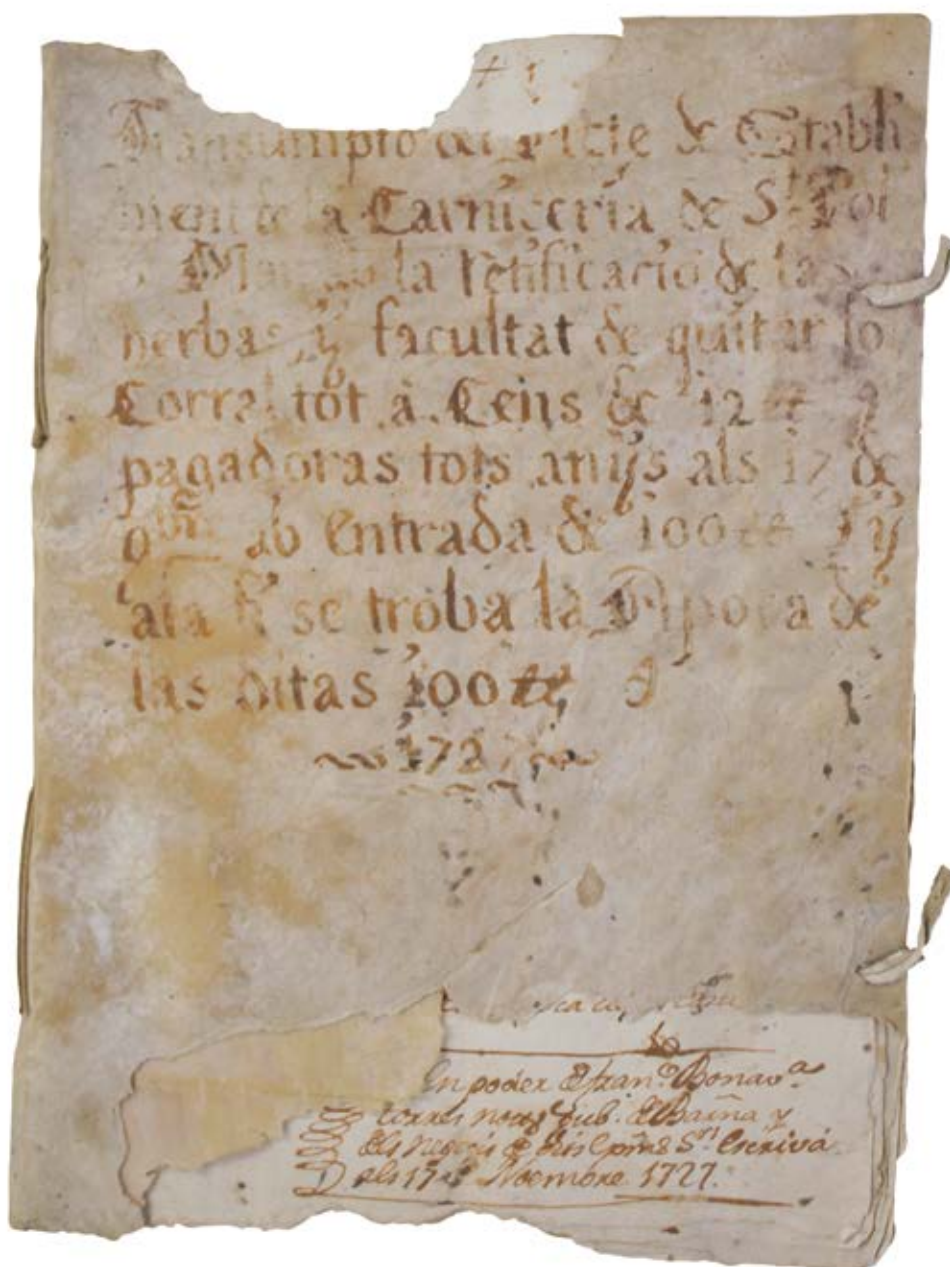 +
Transumpto del Acte de Stabli
ment de la Carniceria de St. Pol
la retificacio de las
herbas, y facultat de quitar lo
Corral tot á Cens de 12 ₶
pagadoras tots anys als 17 de
9bre ab Entrada de 100 ₶ y
ala fi se troba la Apoca de
las ditas 100 ₶
1727
En poder de Franco Bonava
Torres nott pub. de Barna y
dels negocis Escrivá
als 17 de Noembre 1727.